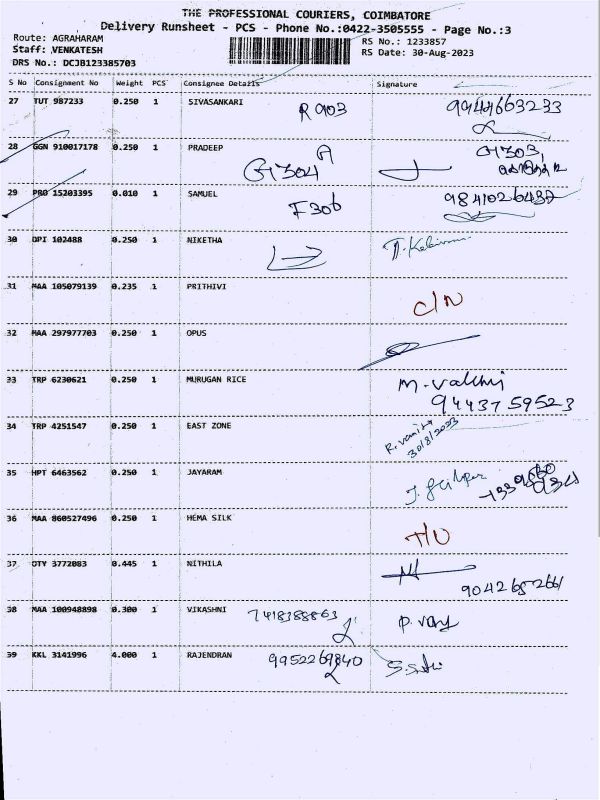 THE PROFESSIONAL COURIERS, COIMBATORE
Delivery Runsheet - PCS - Phone No.:0422-3505555 - Page No.:3
Route: AGRAHARAM
RS No.: 1233857
Staff: VENKATESH
RS Date: 30-Aug-2023
DRS No.: DCJB123385703
S No Consignment No Weight PCS Consignee Details Signature
27 TUT 987233 0.250 1 SIVASANKARI R 903
28 GGN 910017178 0.250 1 PRADEEP A G1304 G1303,
29 PRO 15203395 0.010 1 SAMUEL F306 9841026437
30 OPI 102488 0.250 1 NIKETHA
31 MAA 105079139 0.235 1 PRITHIVI C/N
32 MAA 297977703 0.250 1 OPUS
33 TRP 6230621 0.250 1 MURUGAN RICE M. Valchi
9443759523
34 TRP 4251547 0.250 1 EAST ZONE R. Vanitha
30/8/2023
35 HPT 6463562 0.250 1 JAYARAM
36 MAA 860527496 0.250 1 HEMA SILK
37 OTY 3772083 0.445 1 NITHILA
38 MAA 100948898 0.300 1 VIKASHNI 7418388863
39 KKL 3141996 4.000 1 RAJENDRAN 9952269840